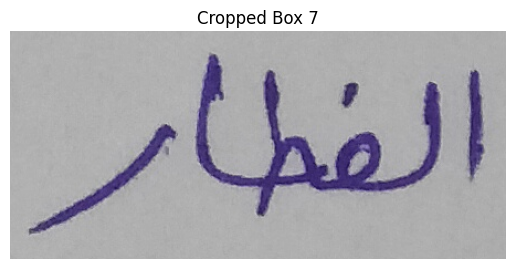 Cropped Box 7
الفطار